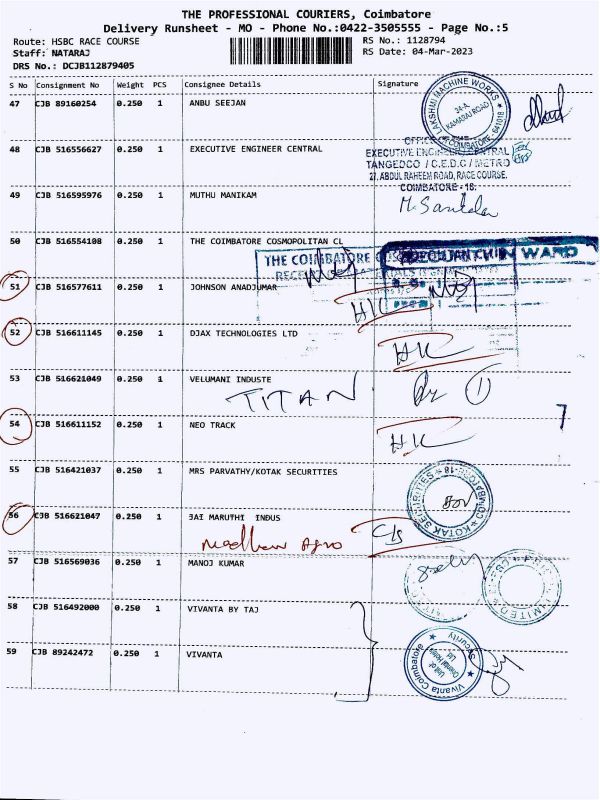 THE PROFESSIONAL COURIERS, Coimbatore
Delivery Runsheet - MO - Phone No.:0422-3505555 - Page No.:5
Route: HSBC RACE COURSE RS No.: 1128794
Staff: NATARAJ RS Date: 04-Mar-2023
DRS No.: DCJB112879405
S No Consignment No Weight PCS Consignee Details Signature
47 CJB 89160254 0.250 1 ANBU SEEJAN
LAKSHMI MACHINE WORKS
34-A,
KAMARAJ ROAD
COIMBATORE - 641018
48 CJB 516556627 0.250 1 EXECUTIVE ENGINEER CENTRAL
OFFICE OF THE
EXECUTIVE ENGINEER/CENTRAL
TANGEDCO / C.E.D.C / METRO
27, ABDUL RAHEEM ROAD, RACE COURSE,
COIMBATORE - 18.
49 CJB 516595976 0.250 1 MUTHU MANIKAM
50 CJB 516554108 0.250 1 THE COIMBATORE COSMOPOLITAN CL
THE COIMBATORE
51 CJB 516577611 0.250 1 JOHNSON ANADJUMAR
HK
52 CJB 516611145 0.250 1 DJAX TECHNOLOGIES LTD
HK
53 CJB 516621049 0.250 1 VELUMANI INDUSTE
TITAN 1
54 CJB 516611152 0.250 1 NEO TRACK
HK
7
55 CJB 516421037 0.250 1 MRS PARVATHY/KOTAK SECURITIES
KOTAK SECURITIES COIMBATORE-18
56 CJB 516621047 0.250 1 JAI MARUTHI INDUS
57 CJB 516569036 0.250 1 MANOJ KUMAR
LIMITED
58 CJB 516492000 0.250 1 VIVANTA BY TAJ
59 CJB 89242472 0.250 1 VIVANTA
Security
Unit of
Oriental Hotels
Ltd
Vivanta Coimbatore